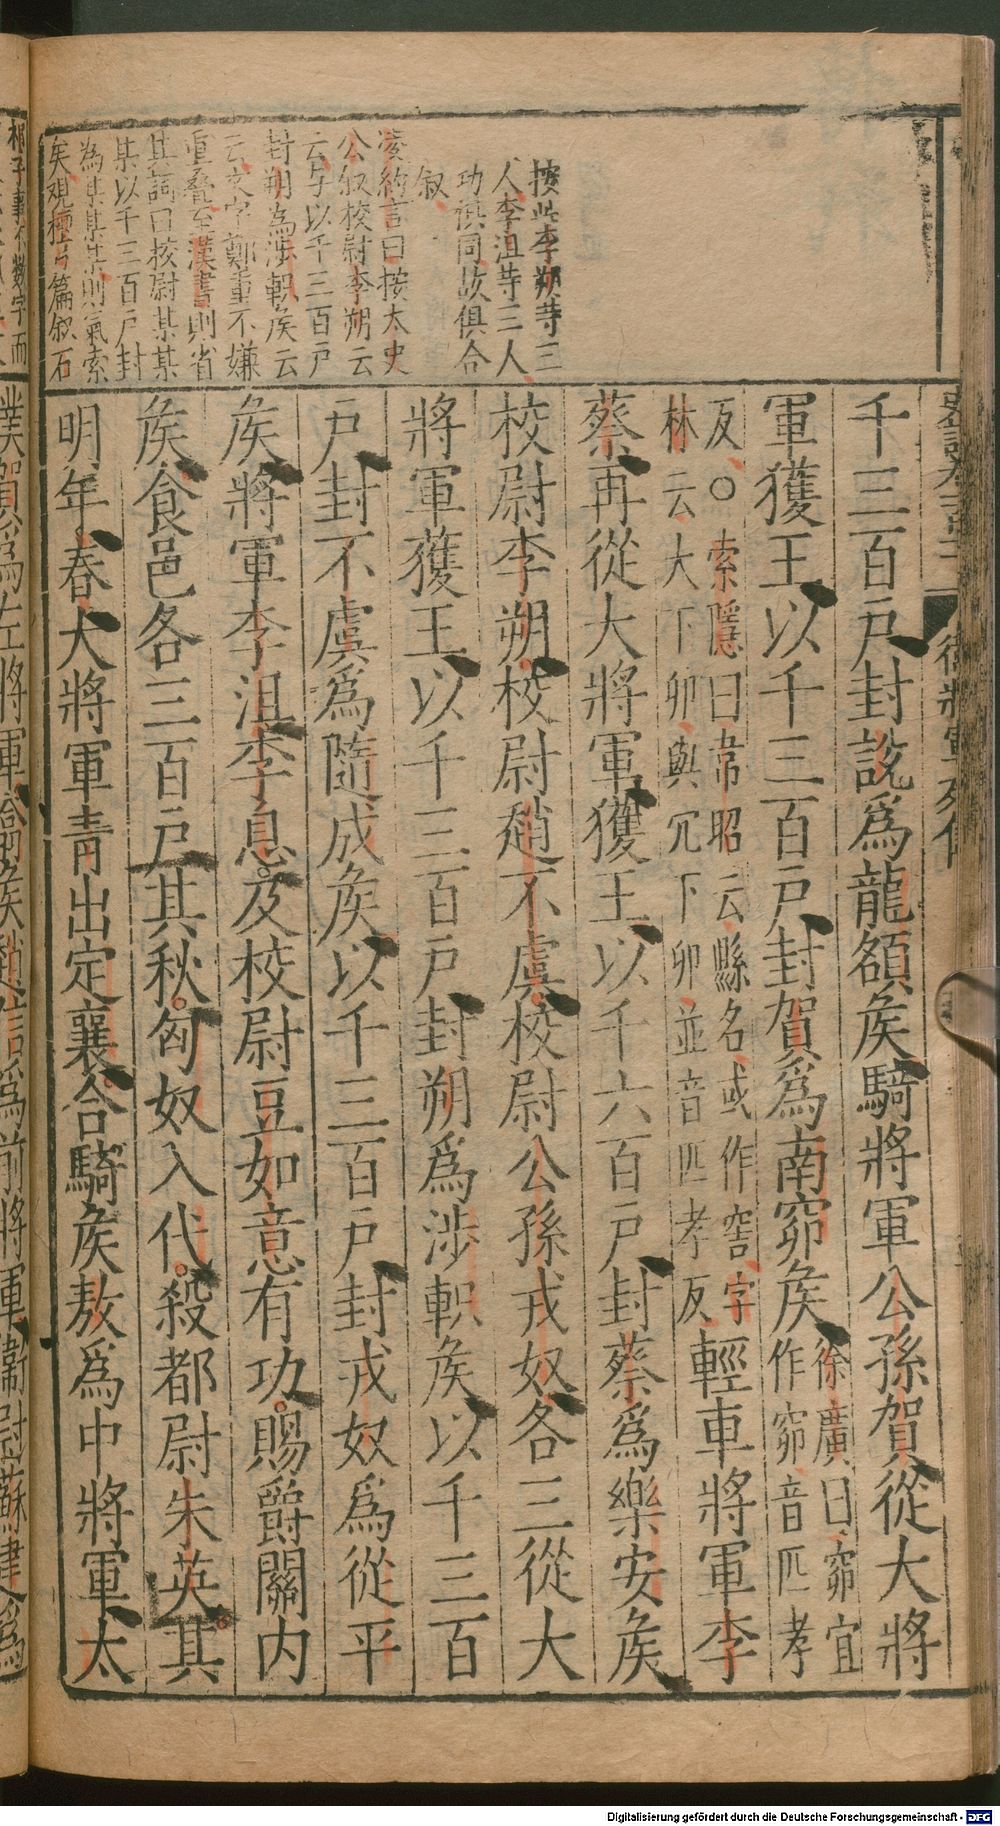 按此李朔等三
人李沮等三人、
功俱同故俱合
叙
凌約言曰按太史
公叙校尉李朔云
云与以千三百戶
封朔為涉軹矦云
云文字鄭重不嫌
重疊至漢書則省
其詞曰校尉某某
某以千三百戶封
為某某矦則氣索
矣觀檀弓篇叙石
千三百戶封說爲龍頟矦騎將軍公孫賀從大將
軍獲王以千三百戶封賀爲南窌矦
徐廣曰、窌宜
作窌、音匹孝
反、○索隱曰韋昭云縣名或作窖、字
林云、大下卯、與宂下卯、並音匹孝反、
輕車將軍李
蔡再從大將軍獲王以千六百戶封蔡爲樂安矦
校尉李朔校尉趙不虞校尉公孫戎奴各三從大
將軍獲王以千三百戶封朔爲涉軹矦以千三百
戶封不虞爲隨成矦以千三百戶封戎奴爲從平
矦將軍李沮李息及校尉豆如意有功賜爵關内
矦食邑各三百戶其秋匈奴入代殺都尉朱英其
明年春大將軍青出定襄合騎矦敖爲中將軍太
衛將軍列傳
僕賀爲左將軍翕矦趙信爲前將軍衛尉蘇建爲
Digitalisierung gefördert durch die Deutsche Forschungsgemeinschaft - DFG